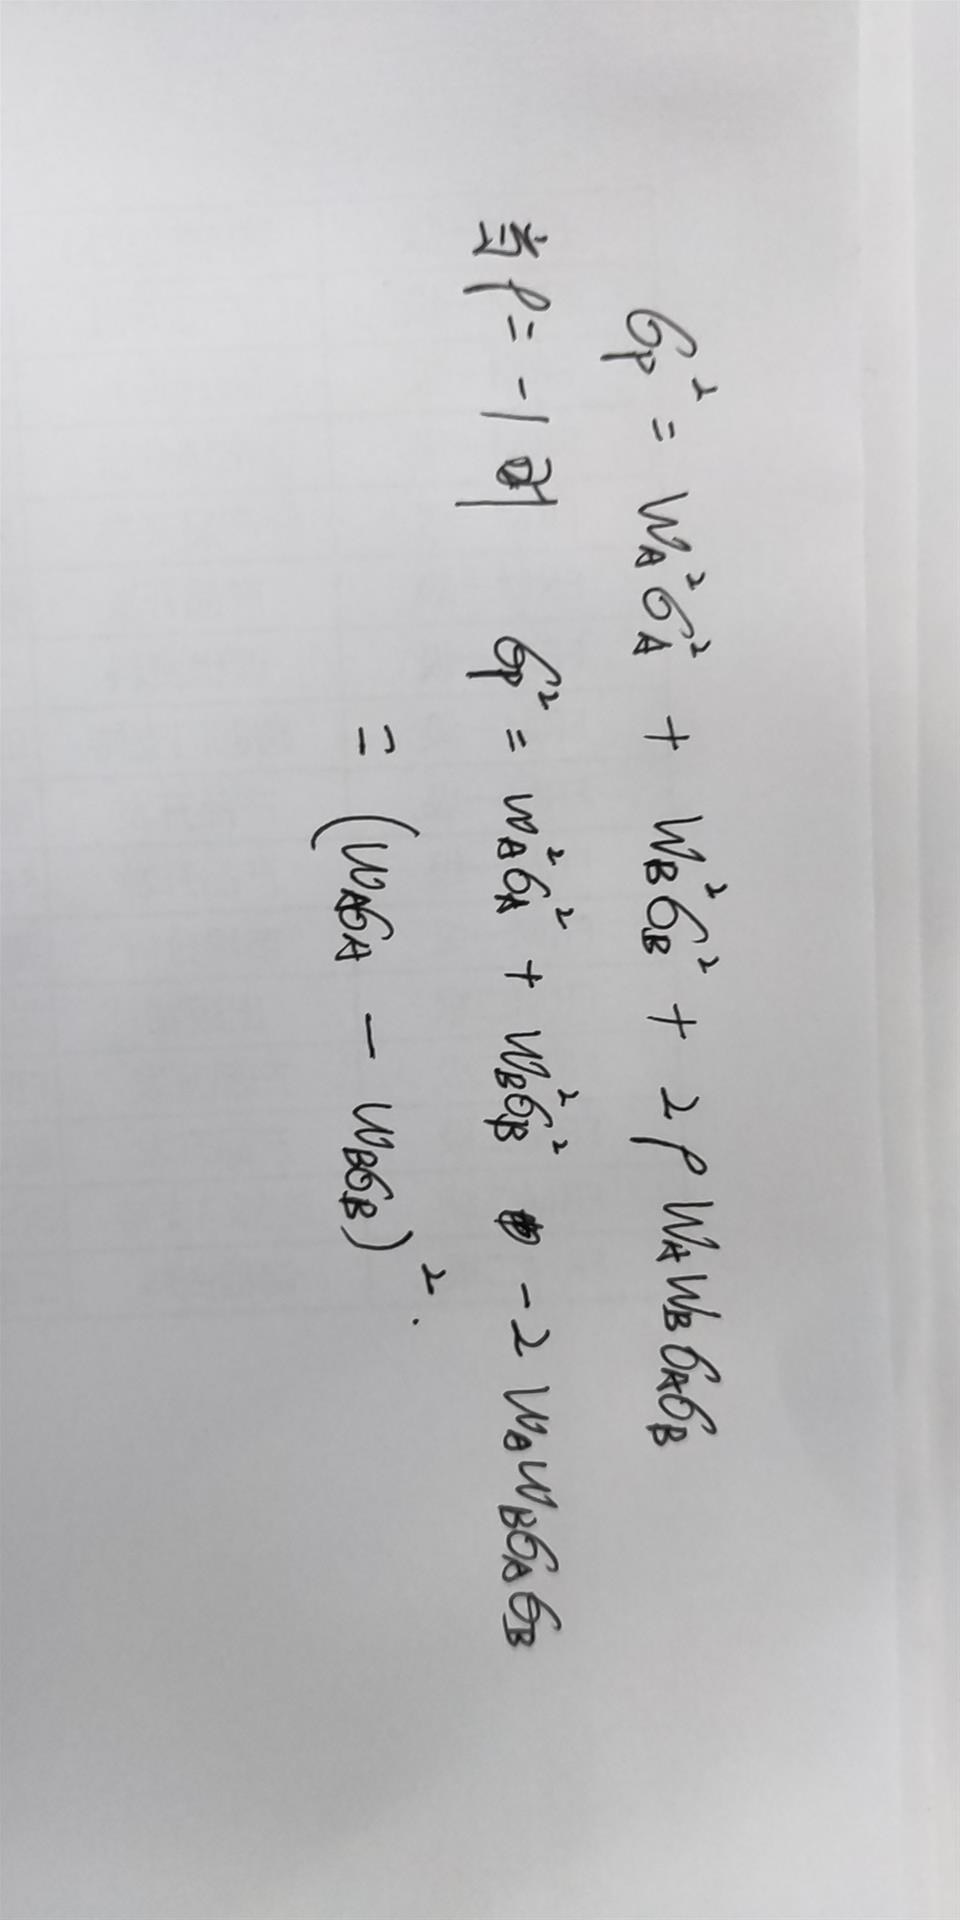 σ_P² = W_A²σ_A² + W_B²σ_B² + 2ρW_AW_Bσ_Aσ_B
当ρ=-1时 σ_P² = W_A²σ_A² + W_B²σ_B² -2W_AW_Bσ_Aσ_B
= (W_Aσ_A - W_Bσ_B)².